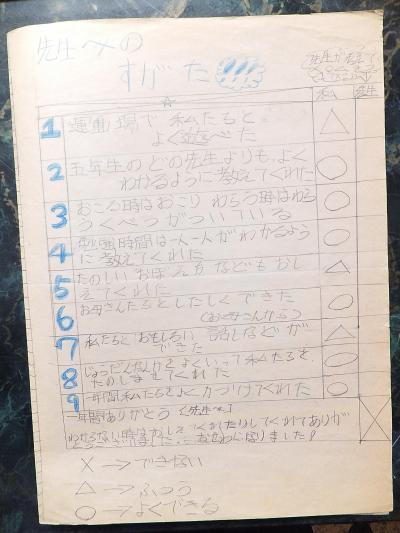 先生への
すがた!!!
私 先生
☆
1 運動場で 私たちと、
よく遊べた △
2 五年生のどの先生よりも、よく
わかるように教えてくれた ○
3 おこる時はおこり わらう時はわら
うくべつがついている ○
4 時間は一人一人がわかるよう
に教えてくれた ○
5 たのしいおぼえ方などもおし
えてくれた △
6 お母さんたちとしたしくできた
(お母さんから) ○
7 私たちと おもしろい 話しなどが
できた △
8 じょうだんなんかをよくいって私たちを、
たのしませてくれた ○
9 一年間私たちをよくかつけてくれた ○
一年間ありがとう
わからない時はおしえてくれたりしてくれてありが
とうございました。
× →できない
△ →ふつう
○ →よくできる